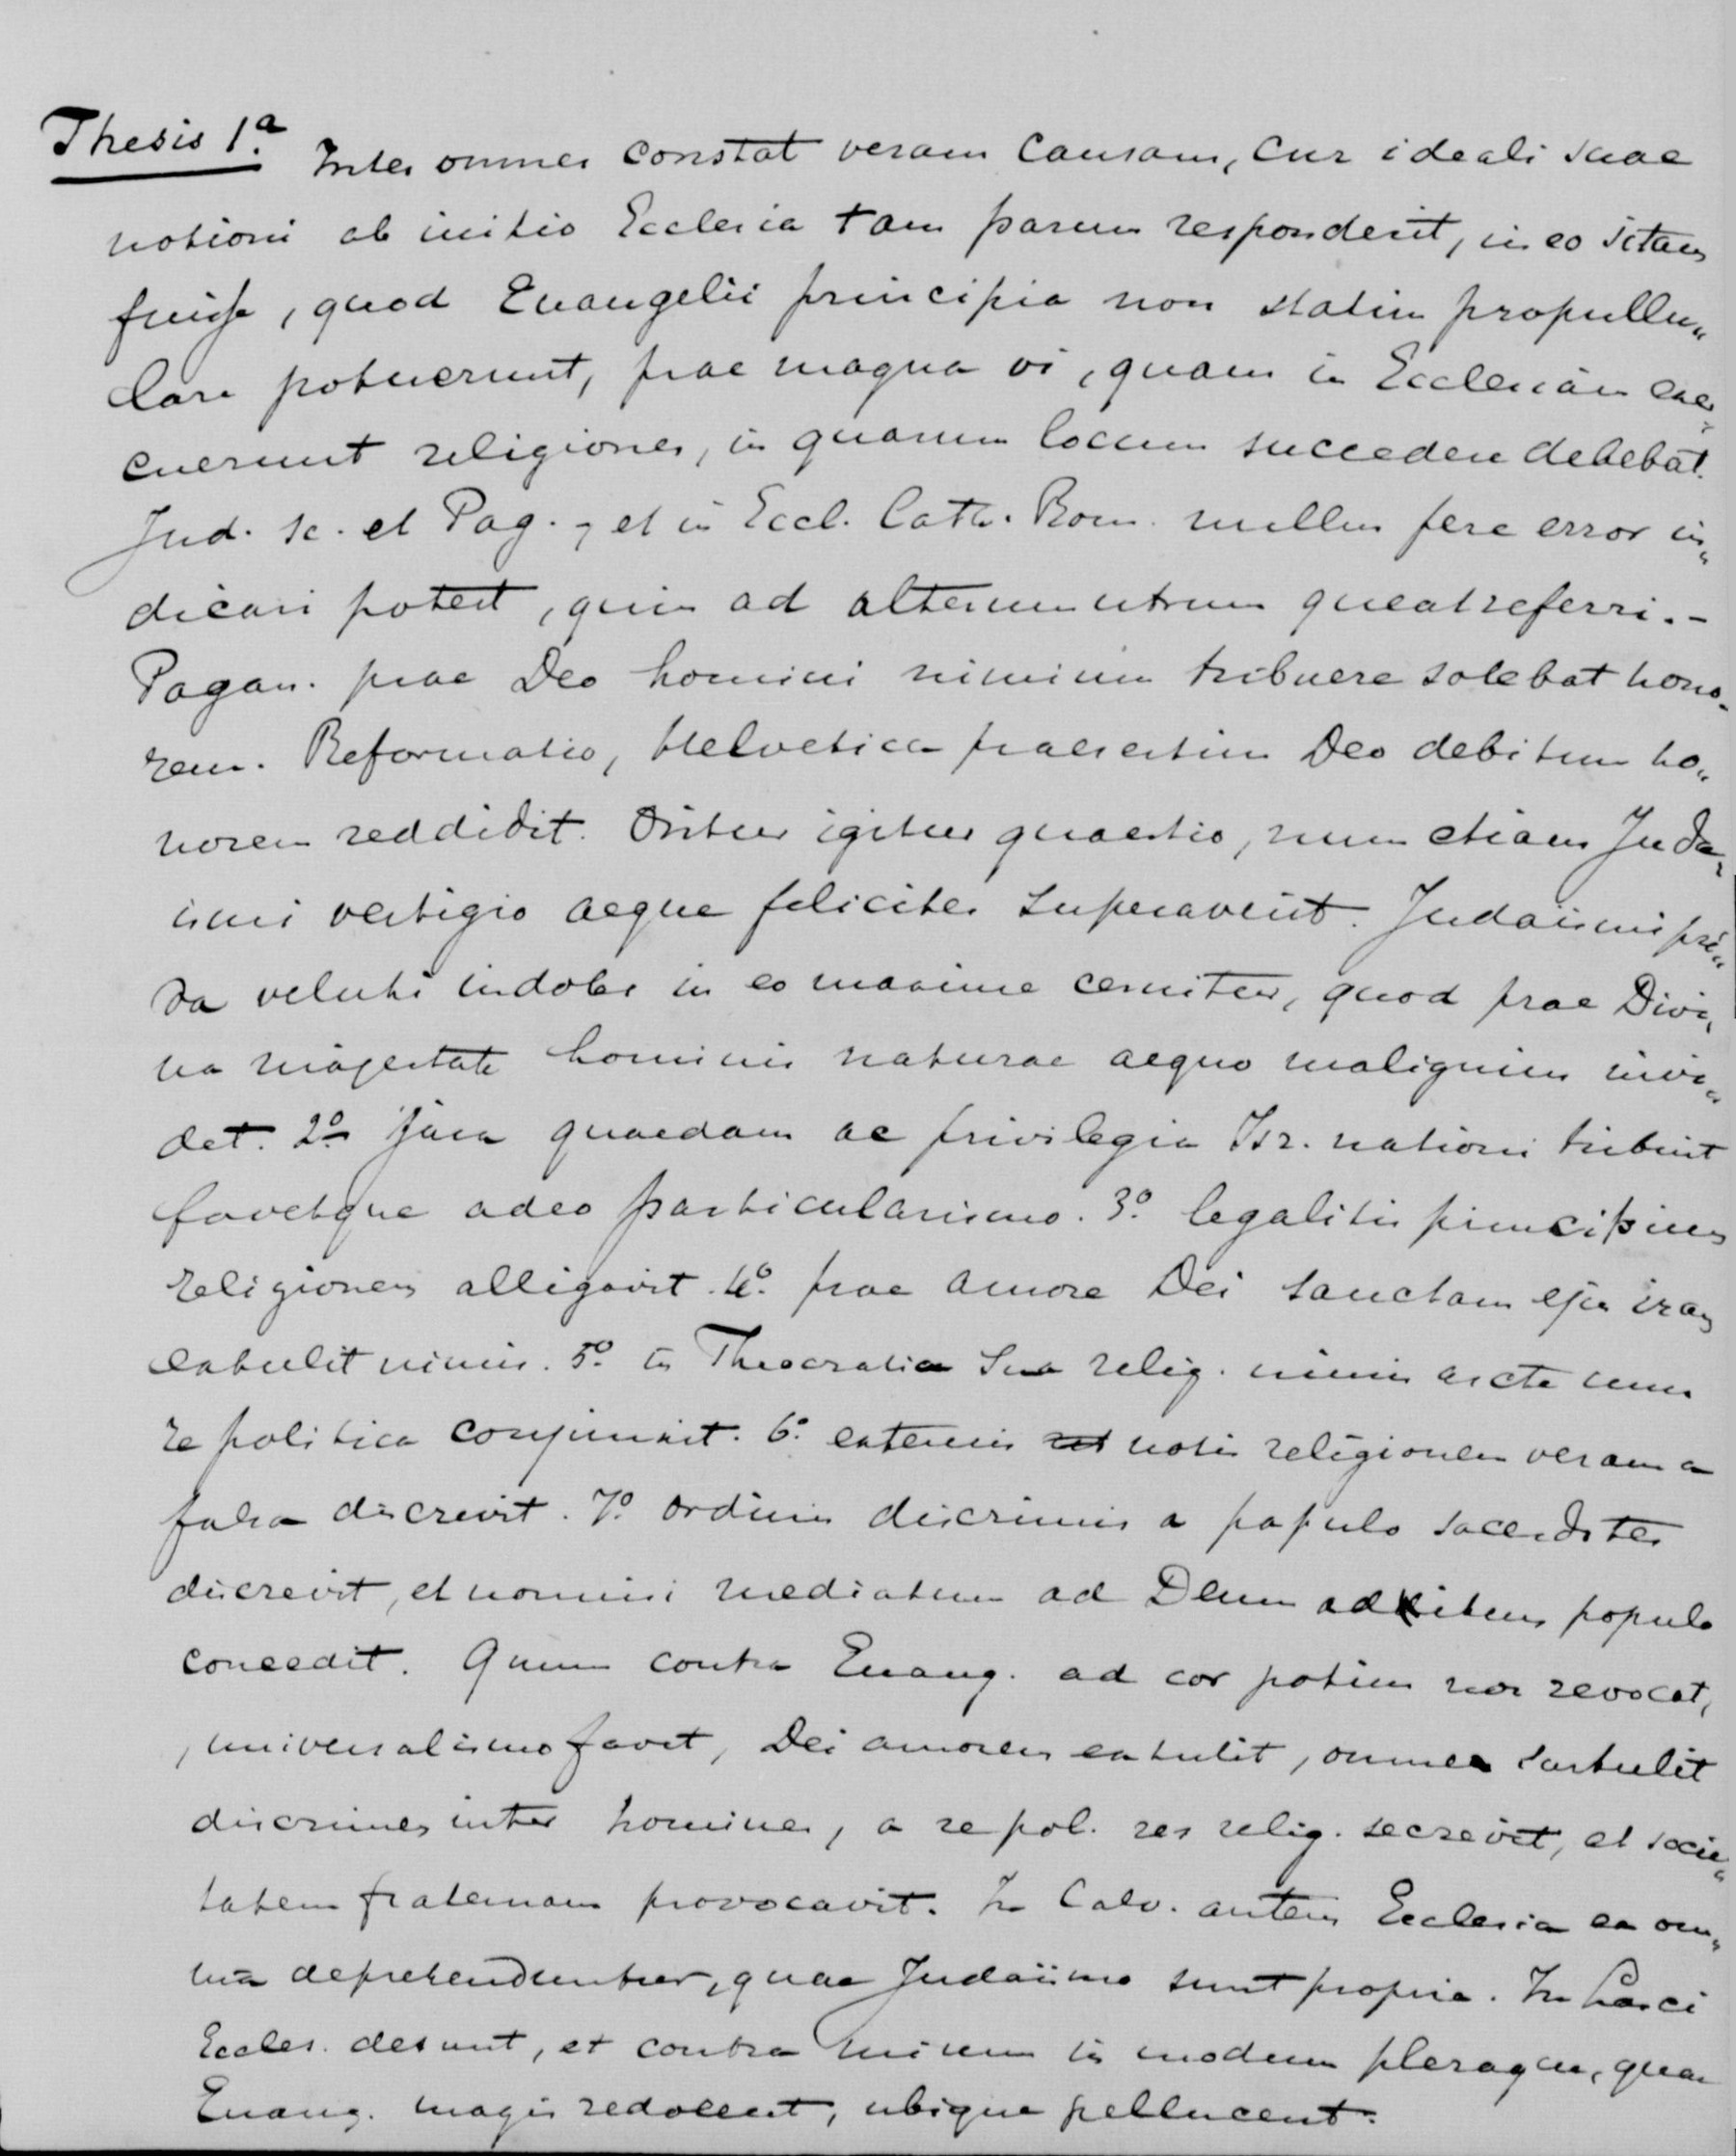 Thesis 1a. Inter omnes constat veram causam, cur ideali suae
notioni ab initio Ecclesia tam parum responderit, in eo sitam
fuisse, quod Euangelii principia non statim propullu„
lare potuerunt, prae magna vi, quam in Ecclesiam exer„
cuerunt religiones, in quarum locum succedere debebat.
Jud. sc. et Pag., et in Eccl. Cath. Rom. nullus fere error in„
dicari potest, quin ad alterumutrum queat referri. -
Pagan. prae Deo homini nimium tribuere solebat hono„
rem. Reformatio, Helvetica praesertim Deo debitum ho„
norem reddidit. Oritur igitur quaestio, num etiam Juda„
ismi vestigia aeque feliciter superaverit. Judaismi pri„
va veluti indoles in eo maxime cernitur, quod prae Divi„
na majestate hominis naturae aequo malignius invi„
det. 2o jura quaedam ac privilegia Isr. nationi tribuit
favetque adeo particularismo. 3o. legalitis principium
religionem alligavit. 4o. prae amore Dei sanctam ejus iram
extulit nimis. 5o. in Theocratia sua relig. nimis arcte cum
re politica conjunxit. 6o. externis notis religionem veram a
falsa discrevit. 7o. ordinis discrimine a populo sacerdotes
discrevit, et nomini mediatum ad Deum aditum populo
concedit. Quum contra Euang. ad cor potius nos revocat,
, universalismo favet, Dei amorem extulit, omnes sustulit
discrimen inter homines, a re pol. res relig. secrevit, et socie„
tatem fraternam provocavit. In Calv. autem Ecclesia ea om„
nia deprehenduntur, quae Judaismo sunt propria. In Lasci
Eccles. desunt, et contra mirum in modum pleraque, quae
Euang. magis redolent, ubique pellucent.